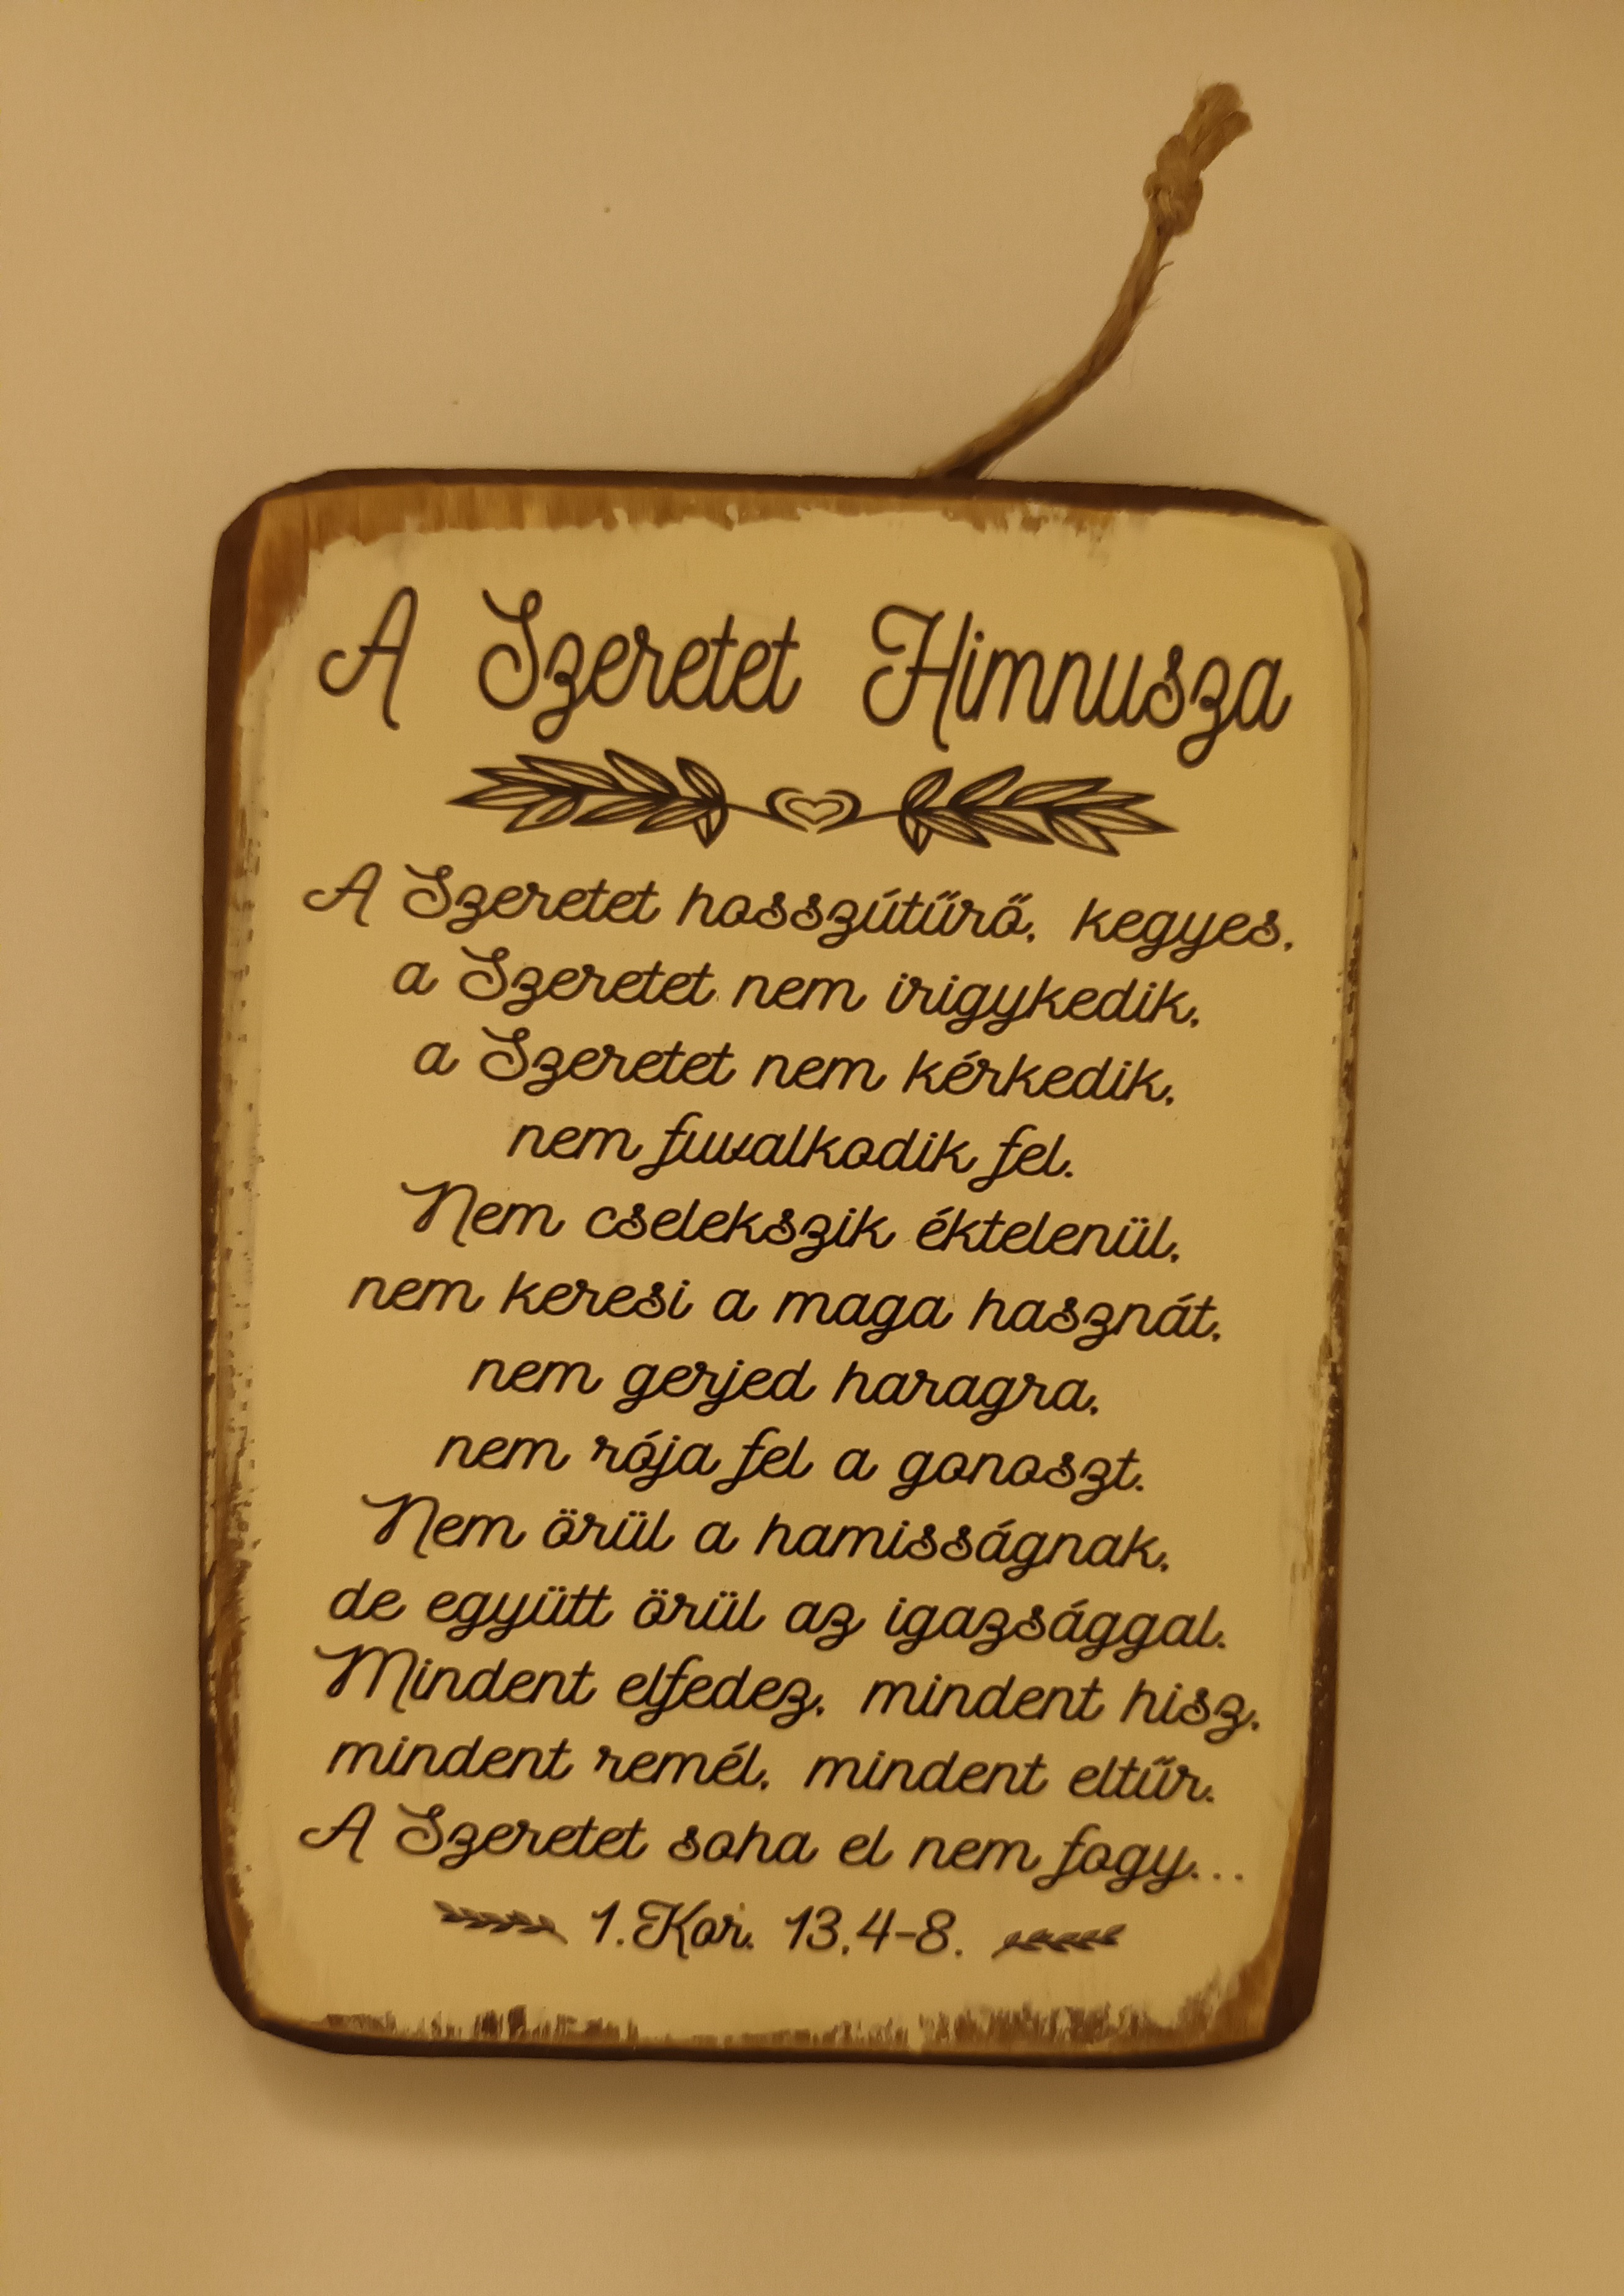 A Szeretet Himnusza
A Szeretet hosszútűrő, kegyes,
a Szeretet nem irigykedik,
a Szeretet nem kérkedik,
nem fuvalkodik fel.
Nem cselekszik éktelenül,
nem keresi a maga hasznát,
nem gerjed haragra,
nem rója fel a gonoszt.
Nem örül a hamisságnak,
de együtt örül az igazsággal.
Mindent elfedez, mindent hisz,
mindent remél, mindent eltűr.
A Szeretet soha el nem fogy...
1.Kor. 13,4-8.